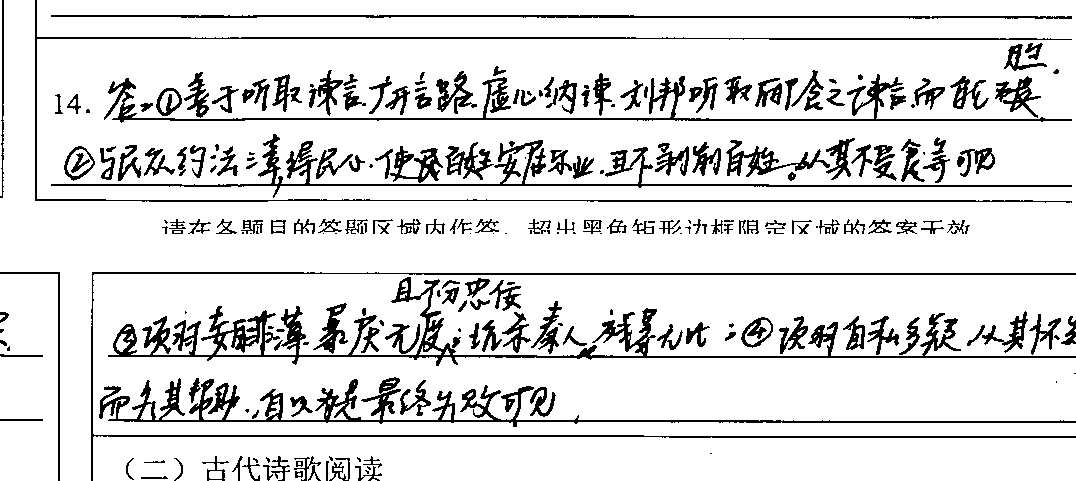 14. 答:①善于听取谏言,广开言路,虚心纳谏.刘邦听取郦食之谏言而能
②与民众约法三章,得民心.使民百姓安居乐业.且不剥削百姓。从其不受食等可见
请在各题目的答题区域内作答,超出黑色矩形边框限定区域的答案无效
且不分忠佞
③项羽妄自菲薄.暴戾无度;坑杀秦人,残暴无比;④项羽自私多疑.从其怀
而为其帮助.自以为是最终失败可见.
(二)古代诗歌阅读